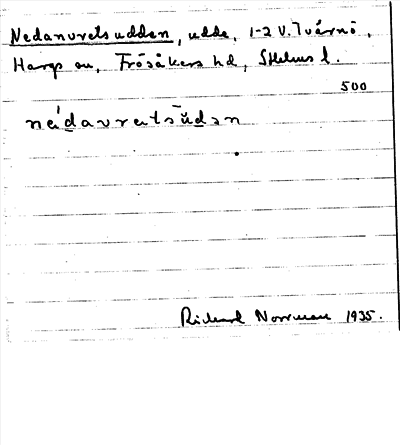 Nedanvretsudden, udde, 1-2 V. Tvärnö,
Hargs sn, Frösåkers hd, Sthlms l.
500
nedavretsudən
Richard Norrman 1935.